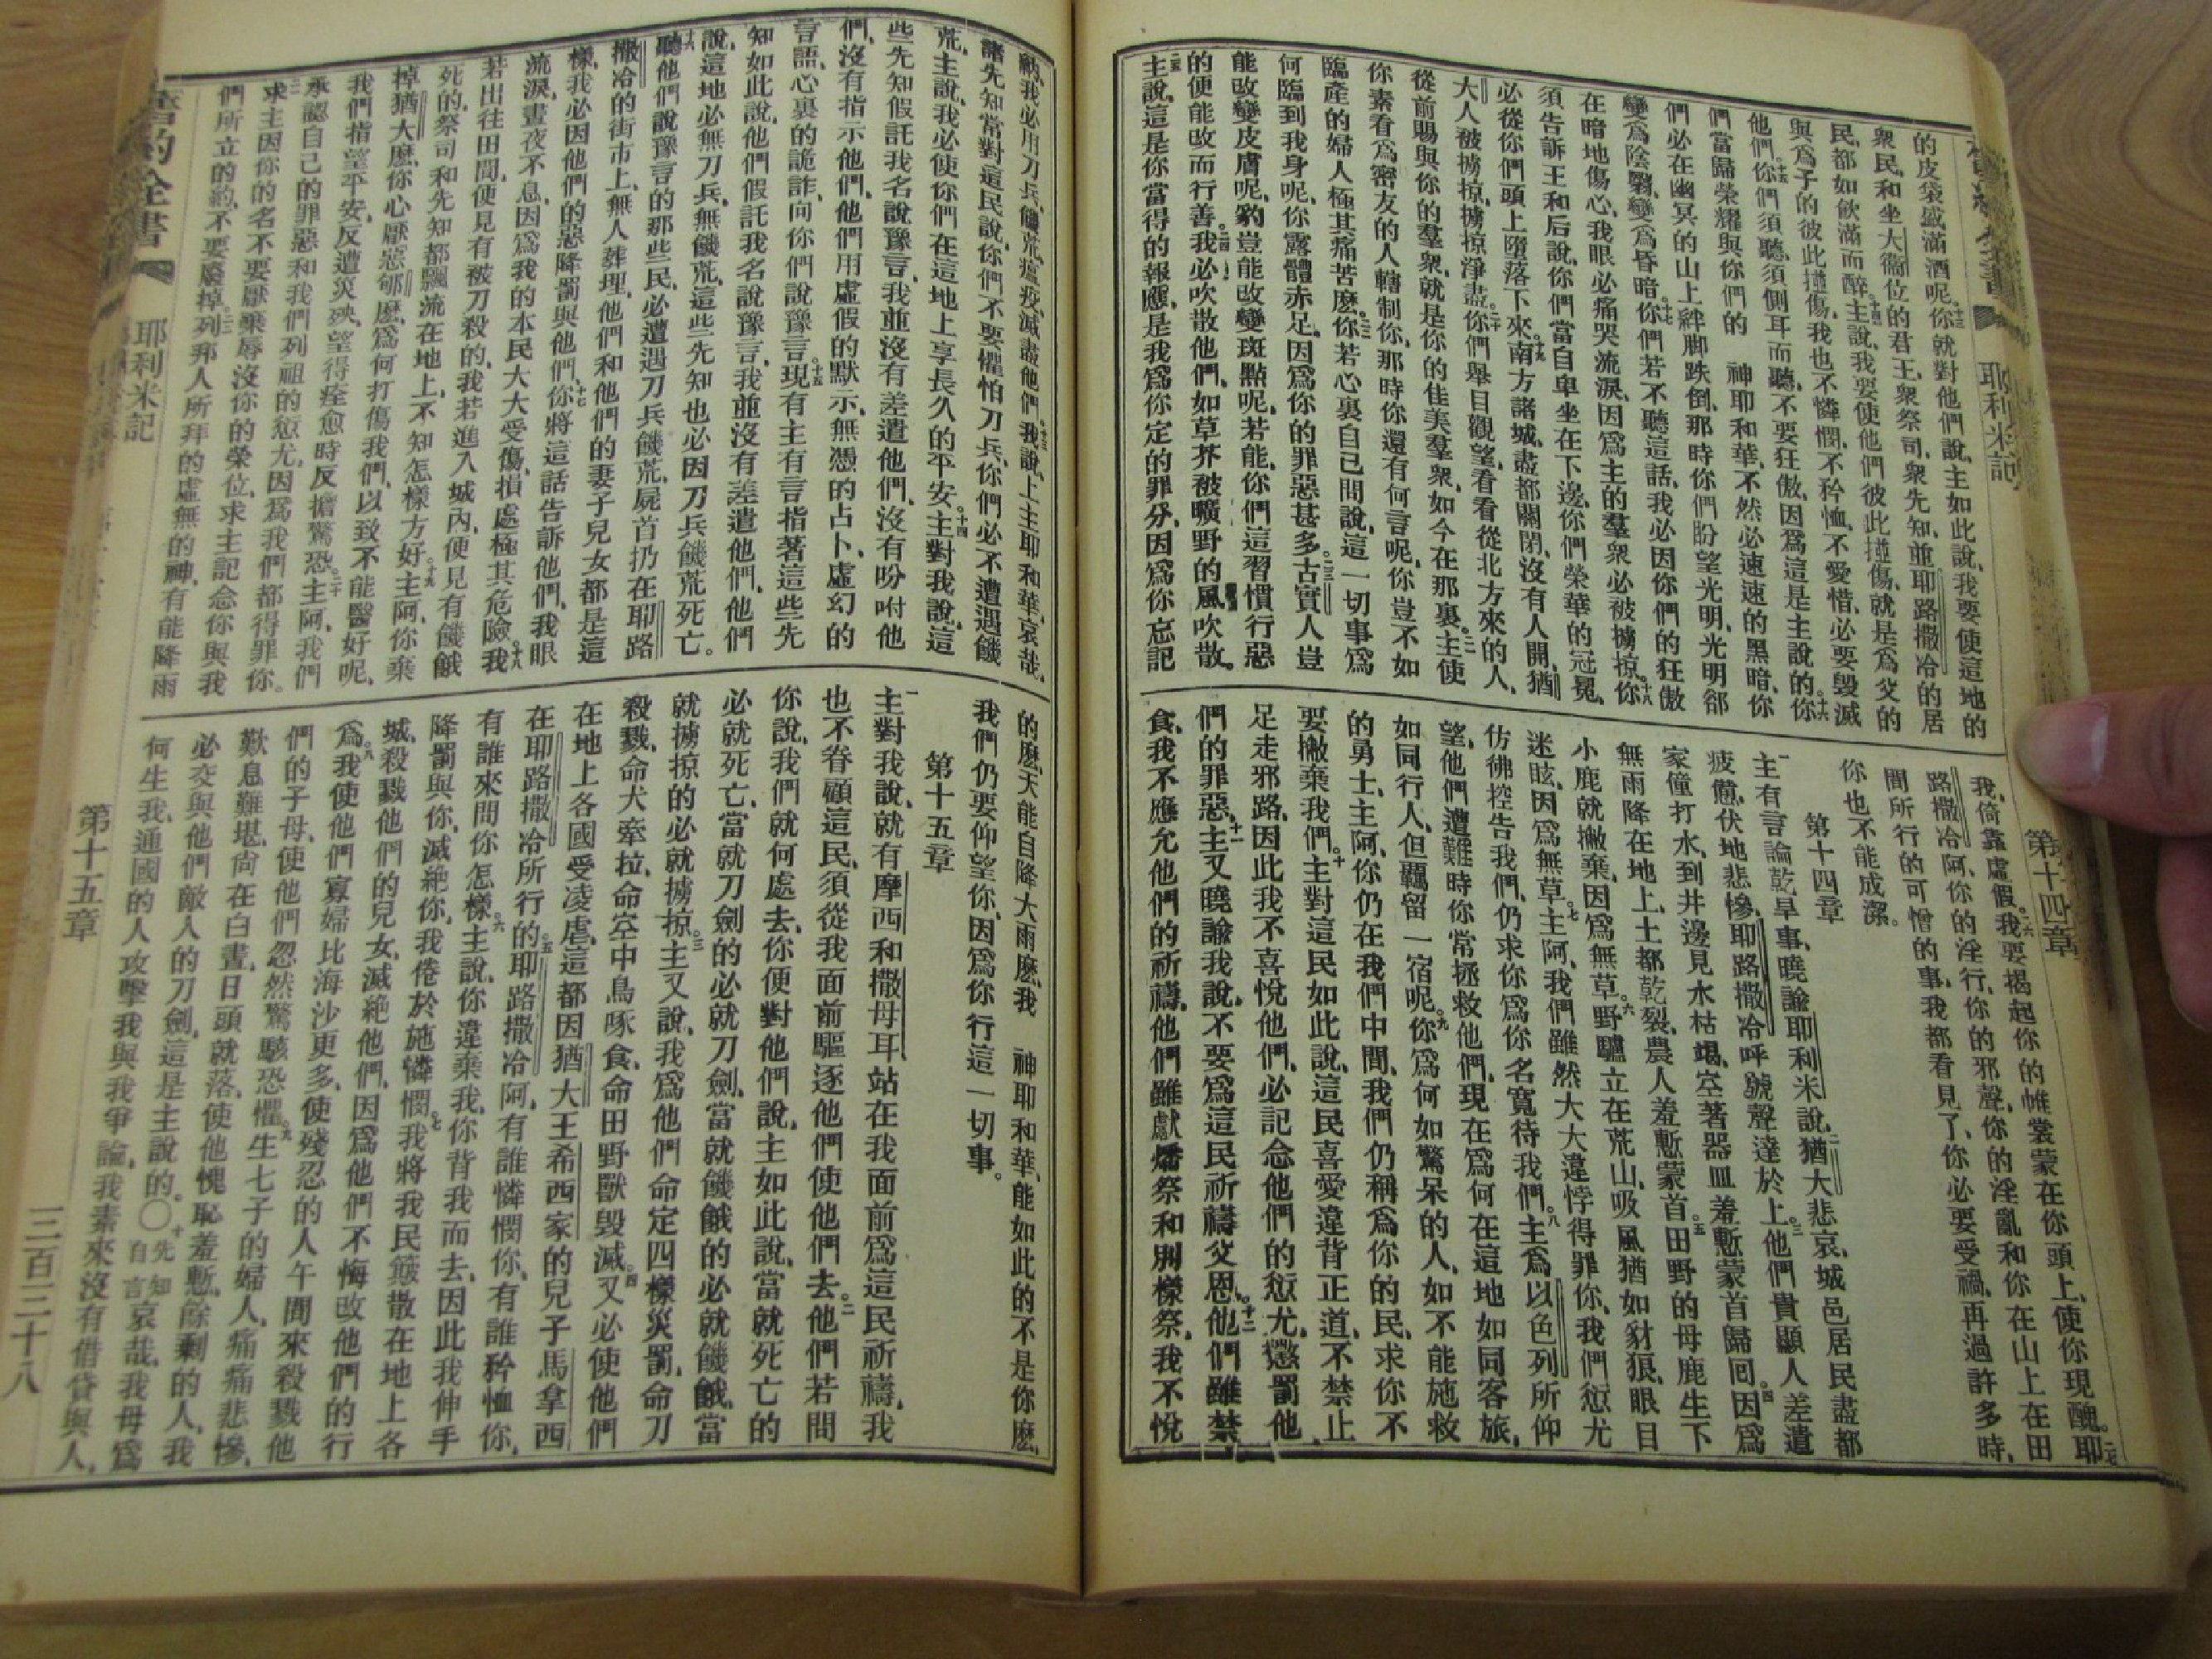 耶利米記
第十四章
的皮袋盛滿酒呢、十三你就對他們說、主如此說、我要使這地的
衆民、和坐大衞位的君王、衆祭司、衆先知、並耶路撒冷的居
民、都如飲滿而醉、十四主說、我要使他們彼此撞傷、就是爲父的
與爲子的彼此撞傷、我也不憐憫、不矜恤、不愛惜、必要毀滅
他們。十五你們須聽、須側耳而聽、不要狂傲、因爲這是主說的。十六你
們當歸榮耀與你們的 神耶和華、不然必速速的黑暗、你
們必在幽冥的山上絆脚跌倒、那時你們盼望光明、光明郤
變爲陰翳、變爲昏暗。十七你們若不聽這話、我必因你們的狂傲
在暗地傷心、我眼必痛哭流淚、因爲主的羣衆必被擄掠。十八你
須告訴王和后說、你們當自卑坐在下邊、你們榮華的冠冕、
必從你們頭上墮落下來。十九南方諸城、盡都關閉、沒有人開、猶
大人被擄掠、擄掠淨盡。二十你們舉目觀望、看看從北方來的人、
從前賜與你的羣衆、就是你的佳美羣衆、如今在那裏。二一主使
你素看爲密友的人轄制你、那時你還有何言呢、你豈不如
臨產的婦人極其痛苦麽。二二你若心裏自己問說、這一切事爲
何臨到我身呢、你露體赤足、因爲你的罪惡甚多。二三古實人豈
能改變皮膚呢、豹豈能改變斑點呢、若能、你們這習慣行惡
的便能改而行善。二四我必吹散他們、如草芥被曠野的風吹散。
二五主說、這是你當得的報應、是我爲你定的罪分、因爲你忘記
我、倚靠虛假。二六我要揭起你的帷裳蒙在你頭上、使你現醜。二七耶
路撒冷阿、你的淫行、你的邪聲、你的淫亂和你在山上在田
間所行的可憎的事、我都看見了、你必要受禍、再過許多時、
你也不能成潔。
第十四章
一主有言論乾旱事、曉諭耶利米說、二猶大悲哀、城邑居民盡都
疲憊、伏地悲慘、耶路撒冷呼號聲達於上。三他們貴顯人差遣
家僮打水、到井邊見水枯竭、空著器皿、羞慙蒙首歸回。四因爲
無雨降在地上、土都乾裂、農人羞慙蒙首。五田野的母鹿生下
小鹿就撇棄、因爲無草。六野驢立在荒山、吸風猶如豺狼、眼目
迷眩、因爲無草。七主阿、我們雖然大大違悖得罪你、我們愆尤
仿彿控告我們、仍求你爲你名寬待我們。八主爲以色列所仰
望、他們遭難時你常拯救他們、現在爲何在這地如同客旅、
如同行人、但覊留一宿呢。九你爲何如驚呆的人、如不能施救
的勇士、主阿、你仍在我們中間、我們仍稱爲你的民、求你不
要撇棄我們。十主對這民如此說、這民喜愛違背正道、不禁止
足走邪路、因此我不喜悅他們、必記念他們的愆尤、懲罰他
們的罪惡。十一主又曉諭我說、不要爲這民祈禱求恩。十二他們雖禁
食、我不應允他們的祈禱、他們雖獻燔祭和別樣祭、我不悅
納、我必用刀兵、饑荒、瘟疫、滅盡他們。十三我說、上主耶和華、哀哉、
諸先知常對這民說、你們不要懼怕刀兵、你們必不遭遇饑
荒、主說、我必使你們在這地上享長久的平安。十四主對我說、這
些先知假託我名說豫言、我並沒有差遣他們、沒有吩咐他
們、沒有指示他們、他們用虛假的默示、無憑的占卜、虛幻的
言語、心裏的詭詐、向你們說豫言。十五現有主有言指著這些先
知如此說、他們假託我名說豫言、我並沒有差遣他們、他們
說、這地必無刀兵、無饑荒、這些先知也必因刀兵饑荒死亡。
十六聽他們說豫言的那些民、必遭遇刀兵饑荒、屍首扔在耶路
撒冷的街市上、無人葬埋、他們和他們的妻子兒女都是這
樣、我必因他們的惡降罰與他們。十七你將這話告訴他們、我眼
流淚、晝夜不息、因爲我的本民大大受傷、損處極其危險。十八我
若出往田間、便見有被刀殺的、我若進入城內、便見有饑餓
死的、祭司和先知都飄流在地上、不知怎樣方好。十九主阿、你棄
掉猶大麽、你心厭惡郇麽、爲何打傷我們、以致不能醫好呢、
我們指望平安、反遭災殃、望得痊愈時反擔驚恐。二十主阿、我們
承認自己的罪惡、和我們列祖的愆尤、因爲我們都得罪你。
二一求主因你的名不要厭棄、辱沒你的榮位、求主記念你與我
們所立的約、不要廢掉。二二列邦人所拜的虛無的神、有能降雨
的麽、天能自降大雨麽、我 神耶和華、能如此的不是你麽、
我們仍要仰望你、因爲你行這一切事。
第十五章
一主對我說、就有摩西和撒母耳站在我面前爲這民祈禱、我
也不眷顧這民、須從我面前驅逐他們使他們去。二他們若問
你說、我們就何處去、你便對他們說、主如此說、當就死亡的
必就死亡、當就刀劍的必就刀劍、當就饑餓的必就饑餓、當
就擄掠的必就擄掠。三主又說、我爲他們命定四樣災罰、命刀
殺戮、命犬牽拉、命空中鳥啄食、命田野獸毀滅。四又必使他們
在地上各國受凌虐、這都因猶大王希西家的兒子馬拿西
在耶路撒冷所行的。五耶路撒冷阿、有誰憐憫你、有誰矜恤你、
有誰來問你怎樣。六主說、你違棄我、你背我而去、因此我伸手
降罰與你、滅絕你、我倦於施憐憫。七我將我民簸散在地上各
城、殺戮他們的兒女、滅絕他們、因爲他們不悔改他們的行
爲。八我使他們寡婦比海沙更多、使殘忍的人午間來殺戮他
們的子母、使他們忽然驚駭恐懼。九生七子的婦人、痛痛悲慘、
歎息難堪、尚在白晝、日頭就落、使他愧恥羞慙、餘剩的人、我
必交與他們敵人的刀劍、這是主說的。〇十先知自言哀哉、我母爲
何生我、通國的人攻擊我與我爭論、我素來沒有借貸與人、
舊約全書
耶利米記
第十五章
三百三十八